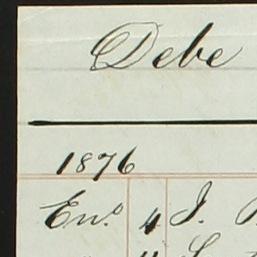 Debe
1876
En.º 4 J.
" L